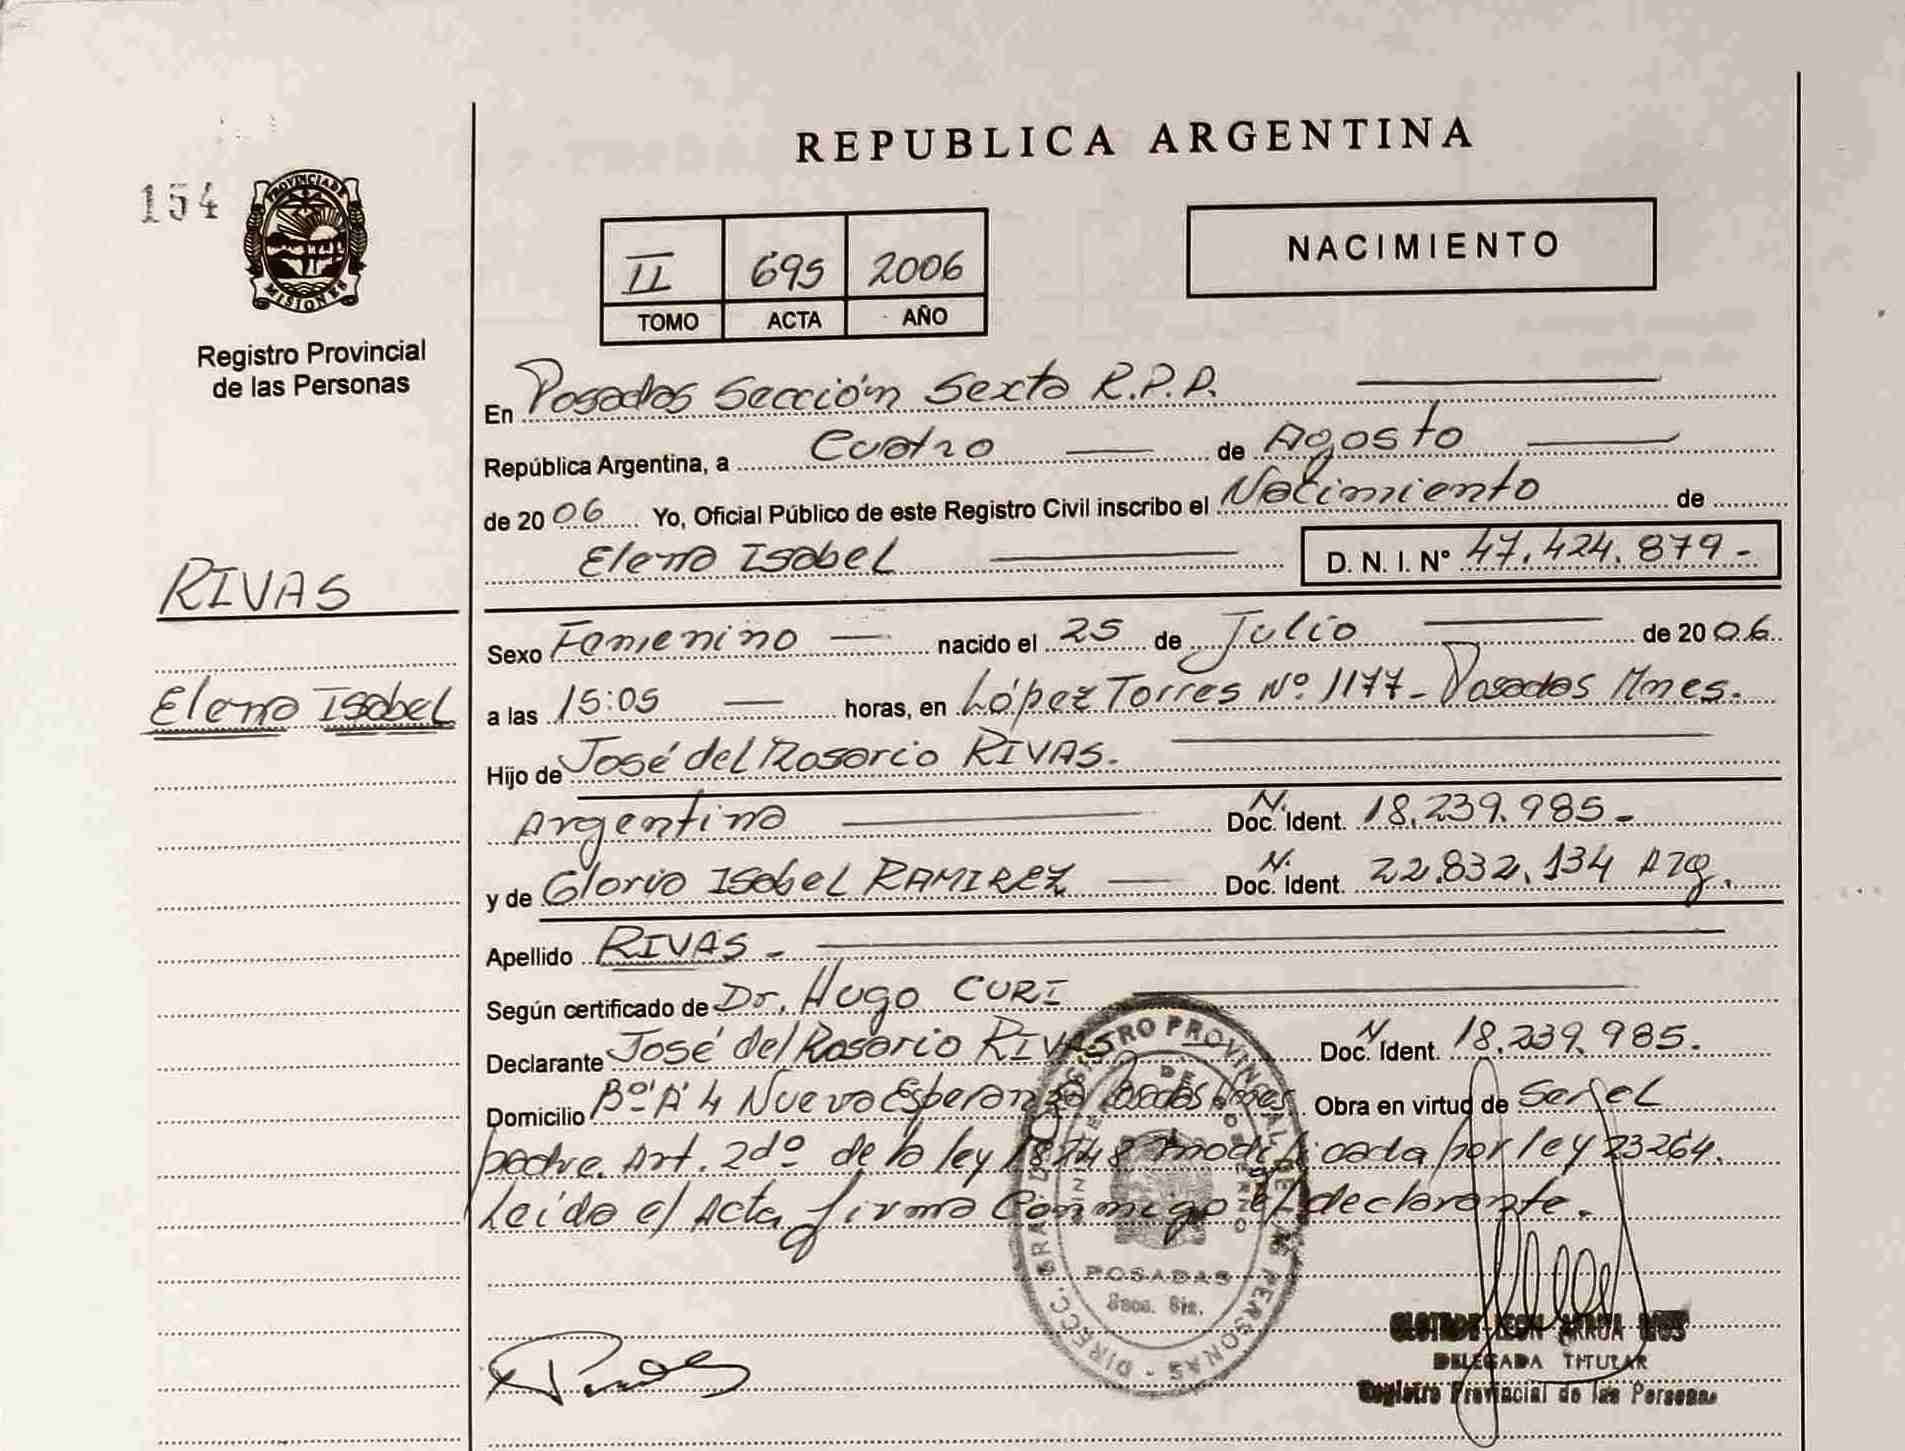 REPUBLICA ARGENTINA
154
PROVINCIA DE
MISIONES
Registro Provincial
de las Personas
II 695 2006
TOMO ACTA AÑO
NACIMIENTO
En Posadas Sección Sexta R.P.P.
República Argentina, a Cuatro de Agosto
de 2006 Yo, Oficial Público de este Registro Civil inscribo el Nacimiento de
Elena Isabel D. N. I. N° 47.424.879-
RIVAS
Elena Isabel
Sexo Femenino nacido el 25 de Julio de 2006.
a las 15:05 horas, en López Torres Nº 1177- Posadas Mnes.
Hijo de José del Rosario RIVAS.
Argentina N. Doc. Ident. 18.239.985.-
y de Gloria Isabel RAMIREZ N. Doc. Ident. 22.832.134 Arg.
Apellido RIVAS-
Según certificado de Dr. Hugo CURI
Declarante José del Rosario RIVAS N Doc. Ident. 18.239.985.
Domicilio Bº "A" 4 Nueva Esperanza Posadas Mnes. Obra en virtud de Ser el
padre. Art. 2dº de la ley 18248 modificada por ley 23264.
Leída el Acta firma Conmigo el declarante.
DIRECC. GRAL. DEL REGISTRO PROVINCIAL DE LAS PERSONAS
POSADAS
Secc. 6ta.
DELEGADA TITULAR
Registro Provincial de las Personas